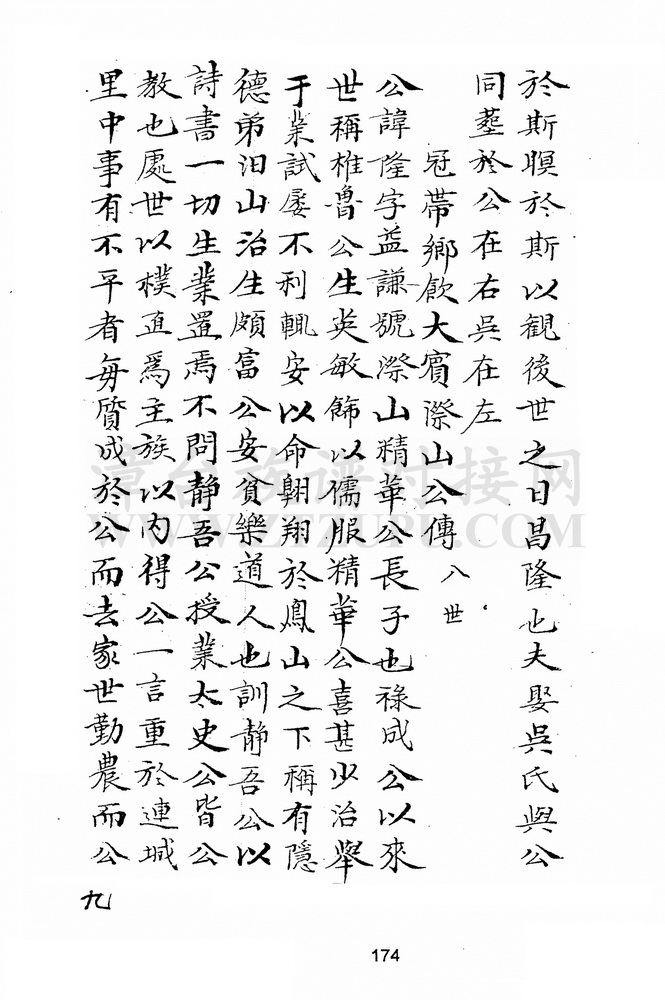 於斯暝於斯以觀後世之日昌隆也夫娶吳氏與公
同塟於公在右吳在左
冠帶鄉飲大賓際山公傳 八世
公諱隆字益謙號際山精華公長子也祿成公以來
世稱椎魯公生英敏飾以儒服精華公喜甚少治舉
于業試屢不利輒安以命翱翔於鳳山之下稱有隱
德弟汨山治生頗富公安貧樂道人也訓靜吾公以
詩書一切生業置焉不問靜吾公授業太史公皆公
教也處世以樸直爲主族以內得公一言重於連城
里中事有不平者每質成於公而去家世勤農而公
九
174
漳台族谱对接网
WWW.ZTZUPU.COM